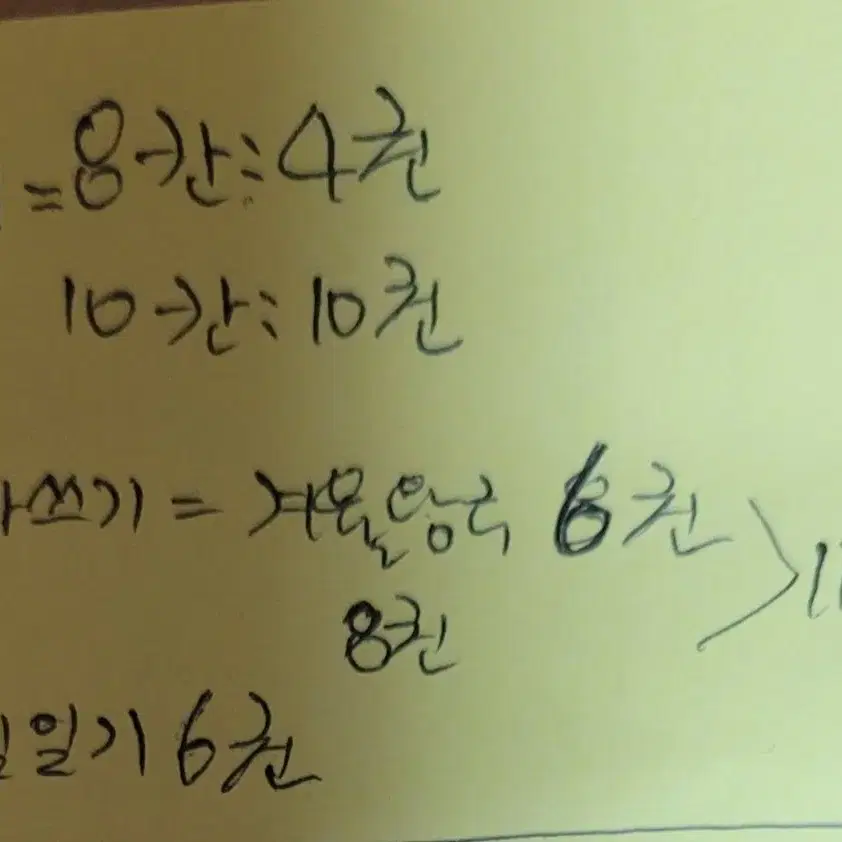 = 8칸: 4권
10칸: 10권
쓰기 = 겨울왕국 6권
8권
일기 6권